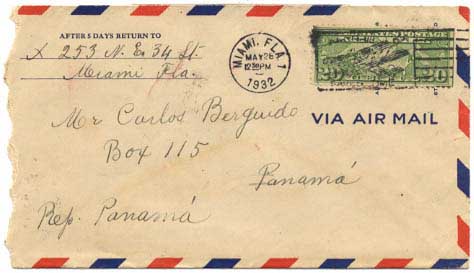 AFTER 5 DAYS RETURN TO
X 253 N. E. 34 St.
Miami Fla.
MIAMI, FLA. 1
MAY 26
12 30 PM
1932
UNITED STATES POSTAGE
20 20
VIA AIR MAIL
Mr Carlos Berguido
Box 115
Panamá
Rep. Panamá